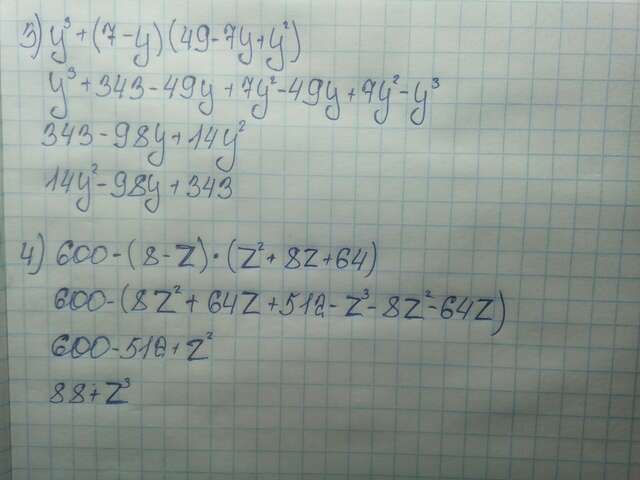 3) y³+(7-y)(49-7y+y²)
y³+343-49y+7y²-49y+7y²-y³
343-98y+14y²
14y²-98y+343
4) 600-(8-z)·(z²+8z+64)
600-(8z²+64z+512-z³-8z²-64z)
600-512+z²
88+z³